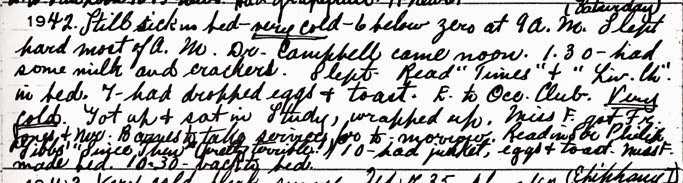 (Saturday)
1942. Still sick in bed - very cold - 6 below zero at 9 A.M. Slept
hard most of A.M. Dr. Campbell came noon. 1.30 - had
some milk and crackers. Slept. Read "Times" & "Liv. Ch."
in bed. 7 - had dropped eggs & toast. E. to Occ. Club. Very
cold. Got up & sat in Study, wrapped up. Miss F. got Fr.
& Nex. Barnes to take services to-morrow. Reading Philip
Gibbs' "Since Then" (pretty terrible!) 10 - had junket, eggs & toast. Miss F.
made bed. 10-30 - back to bed.
(Epiphany)